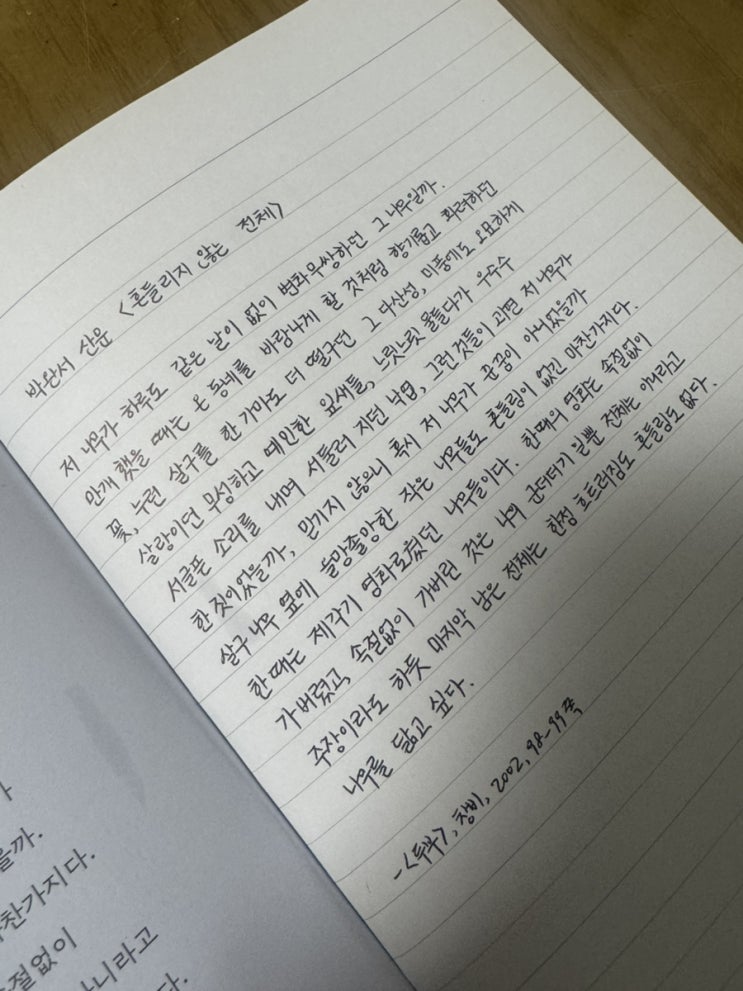 박완서 산문 <흔들리지 않는 전체>
저 나무가 하루도 같은 날이 없이 변화무쌍하던 그 나무일까.
만개했을 때는 온 동네를 바람나게 할 것처럼 향기롭고 화려하던
꽃, 누런 살구를 한 가마도 더 떨구던 그 다산성, 미풍에도 오묘하게
살랑이던 무성하고 예민한 잎새들, 느릿느릿 물들다가 우수수
서글픈 소리를 내며 서둘러 지던 낙엽, 그런 것들이 과연 저 나무가
한 짓이었을까, 믿기지 않으니 혹시 저 나무가 꾼 꿈이 아니었을까
살구나무 옆에 올망졸망한 작은 나무들도 흔들림이 없긴 마찬가지다.
한때는 제각기 영화로웠던 나무들이다. 한때의 영화는 속절없이
가버렸고, 속절없이 가버린 것은 나의 군더더기 일뿐 전체는 아니라고
주장이라도 하듯 마지막 남은 전체는 한점 흐트러짐도 흔들림도 없다.
나무를 닮고 싶다.
-<두부>, 창비, 2002, 98-99쪽
을까.
찬가지다.
절없이
아니라고
다.